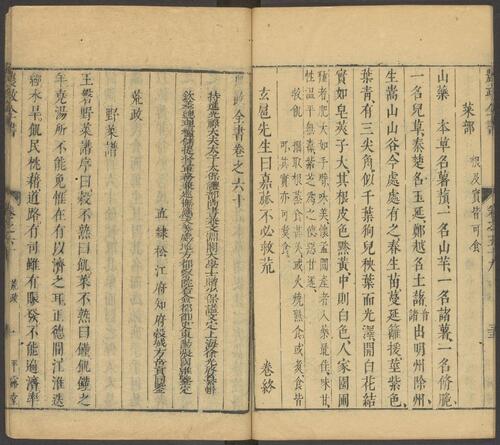 菜部 根及實皆可食
山藥 本草名薯蕷一名山芋一名諸薯一名脩脆
一名兒草秦楚名玉延鄭越名土藷出明州滁州
生嵩山山谷今處處有之春生苗蔓延籬援莖紫色
葉青有三尖角似千葉狗兒秧葉而光澤開白花結
實如皂莢子大其根皮色黲黄中則白色人家園圃
種者肥大如手臂味美懷孟間產者入藥最佳味甘
性温平無毒紫芝爲之使惡甘遂
救飢 掘取根蒸食甚美或火燒熟食或煮食皆
可其實亦可煮食
玄扈先生曰嘉蔬不必救荒
卷終
農政全書卷之六十
特進光禄大夫太子太保禮部尚書兼文淵閣大學士贈少保謚文定上海徐光啟纂輯
直隸松江府知府穀城方岳貢同鑒
荒政
野菜譜
王磐野菜譜序曰穀不熟曰饑菜不熟曰饉饑饉之
年堯湯所不能免惟在有以濟之耳正德間江淮迭
經水旱飢民枕藉道路有司雖有賑發不能遍濟率
農政全書
荒政 一 平露堂